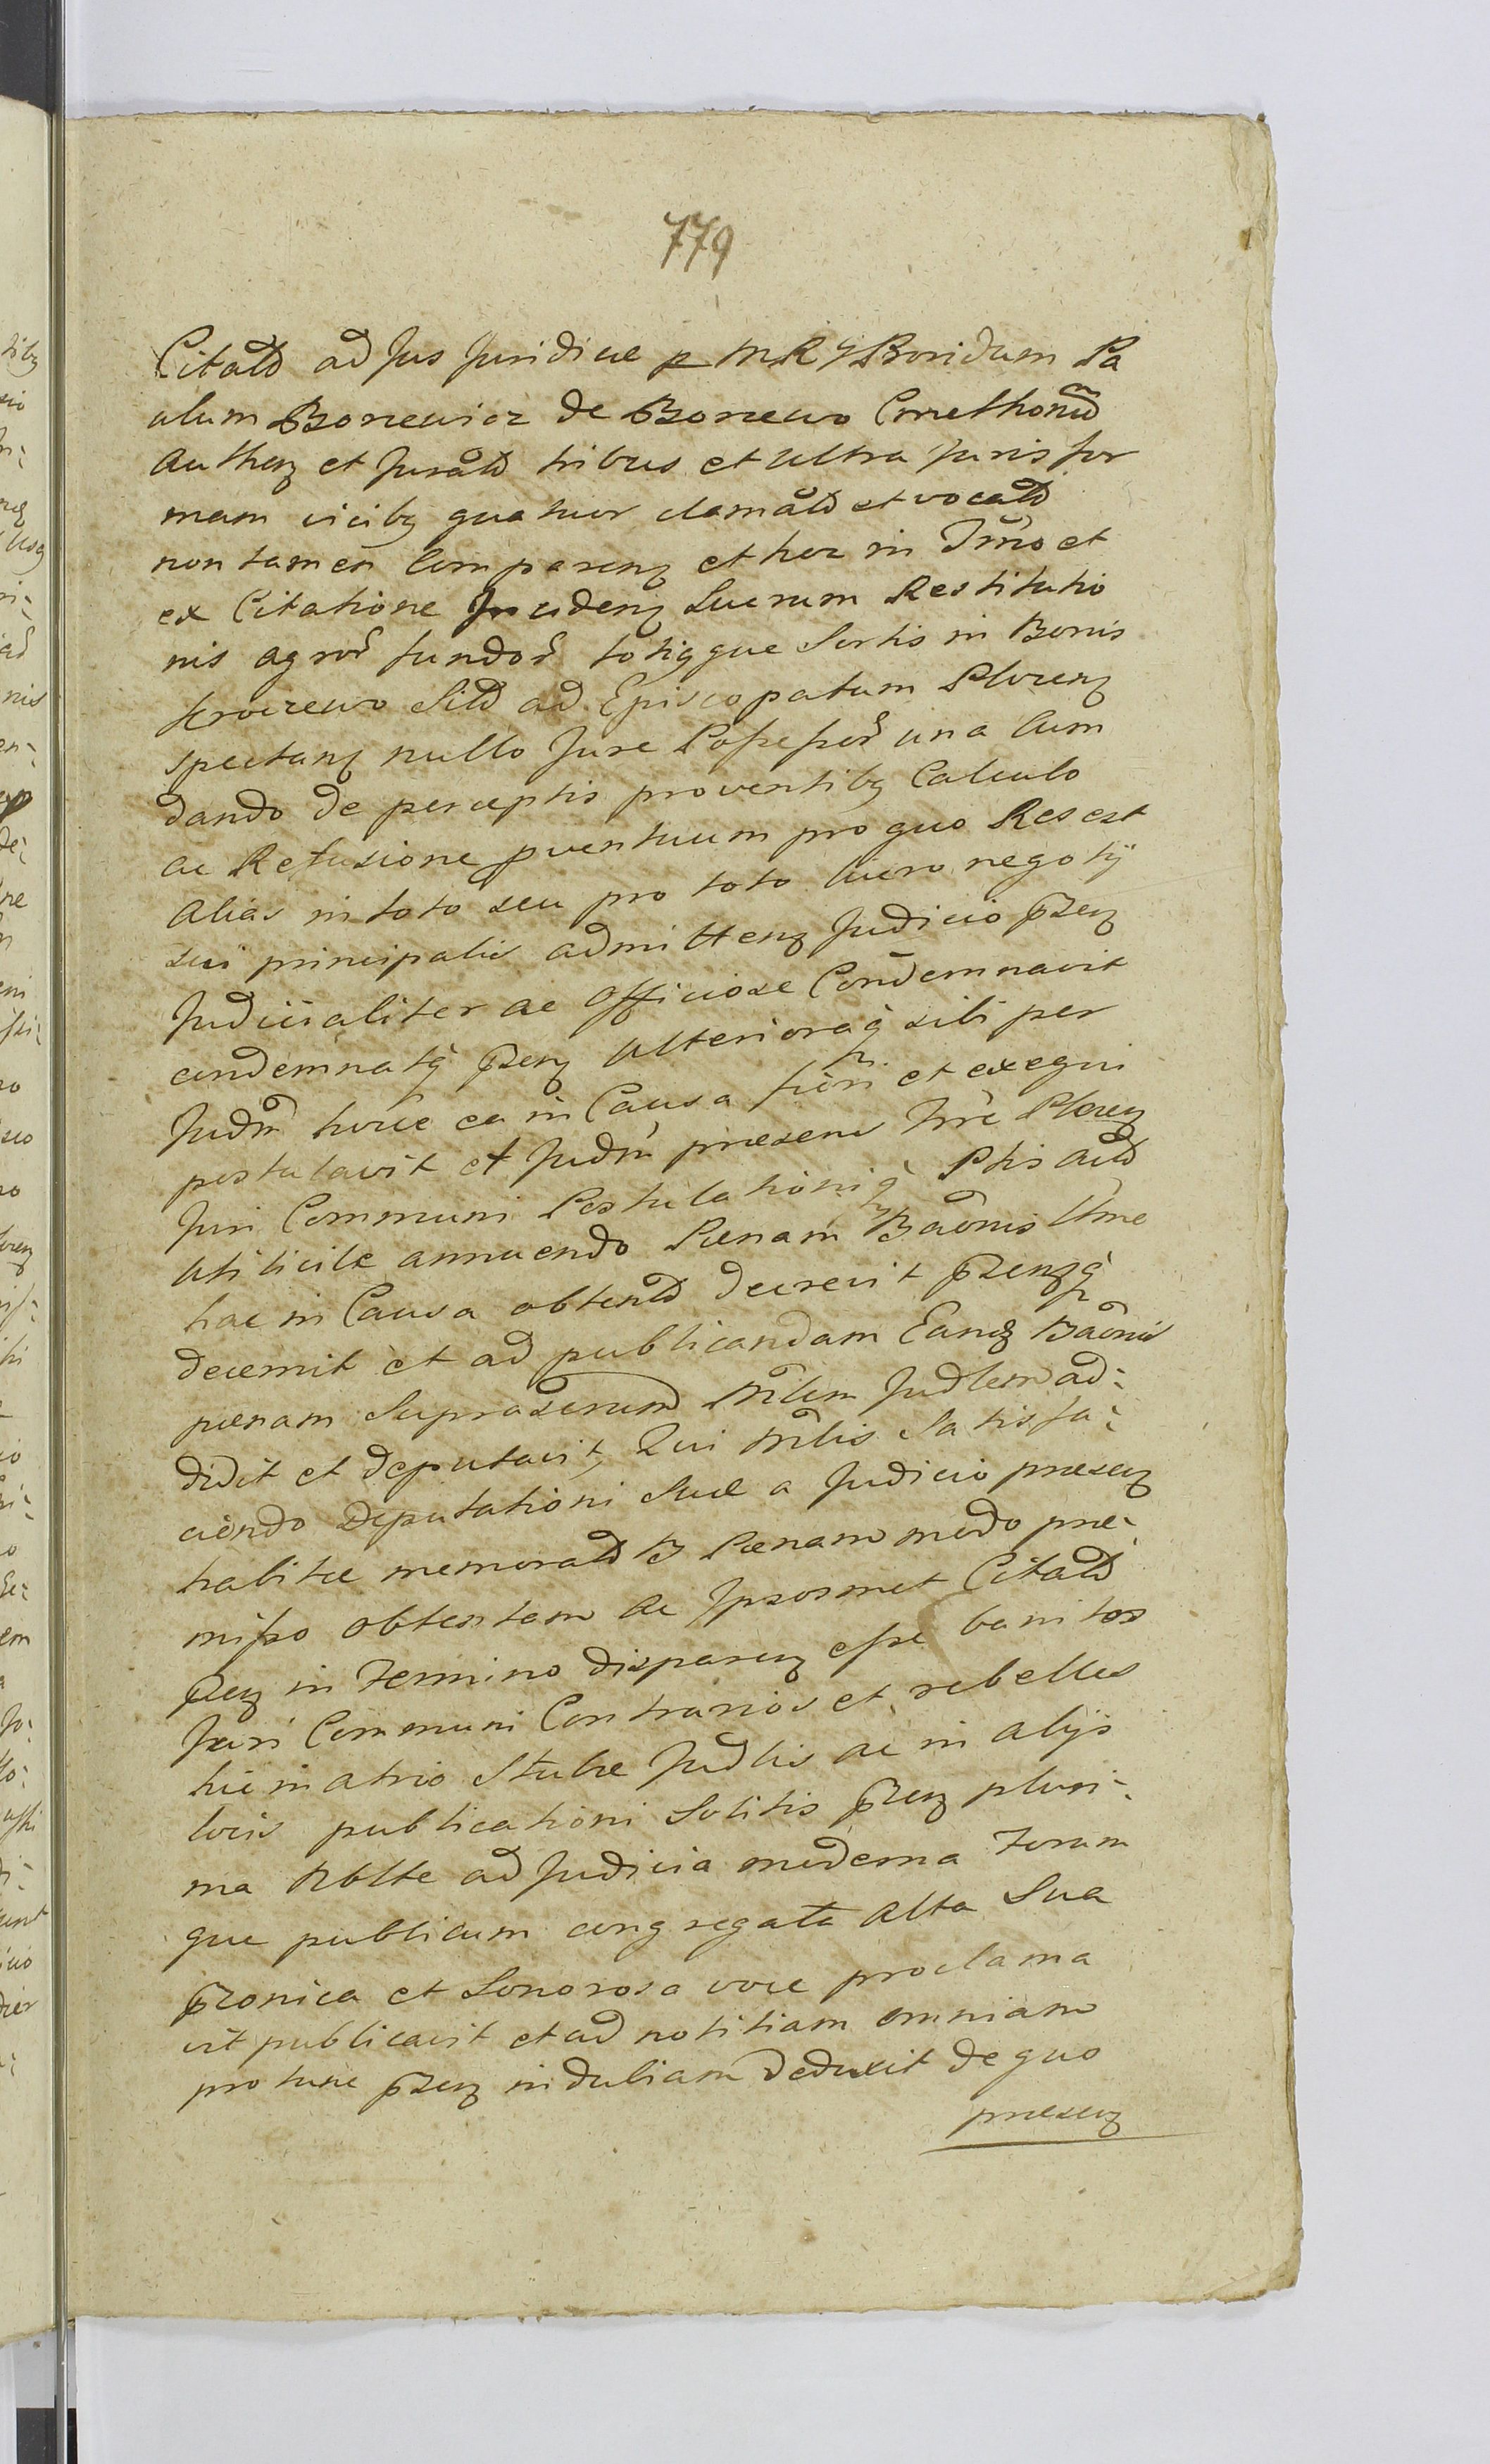 779
Citatd ad Jus Juridice p M R G Boridum Pa
ulum Borrewicz de Borrewo Cmethonum
Authen et Juratd tribus et ultra Juris for
mam vicibq quatuor clamatd et vocatd
non tamen Comparenq et hoc in Tmno et
ex Citatione Incidenq Lucrum Restitutio
nis agror fundor totiqque Sortis in Bonis
Sitd ad Episcopatum Plocenq
spectanq nullo Jure Possessor una Cum
dando de perceptis proventibq Calculo
ac Refusione pventuum pro quo Res est
alias in toto seu pro toto lucro negotij
sui principalis admittenq Judicio pzenq
Judicialiter ac Officiose Condemnavit
condemnatq pzenq Ulterioraq sibi per
Judm hocce ea in Causa fieri et exequi
postulavit et Judm praesens Trre Plocenq
Juri Communi Postulationiq Ptis actd
Uti licite annuendo Paenam Baonis Ume
hac in Causa obtentd decrevit pzenqq
decernit et ad publicandam Eandq Baonis
paenam Suprascrum Mlem Judlem ad-
didit et deputavit, Qui Mlis Satisfa-
ciendo Deputationi Suae a Judicio praesenq
habitae memoratd B Paenam modo prae-
misso obtentam ac Ipsosmet Citatd
pzenq in Termino disparenq esse banitos
Juri Communi Contrarios et rebelles
hic in atrio Stubae Judlis ac in alijs
locis publicationi Solitis pzenq pluri-
ma Nblte ad Judicia moderna Forum
que publicum congregata alta Sua
pzonica et Sonorosa voce proclama
vit publicavit et ad notitiam omniam
pro tunc pzenq indubiam deduxit de quo
praesenq